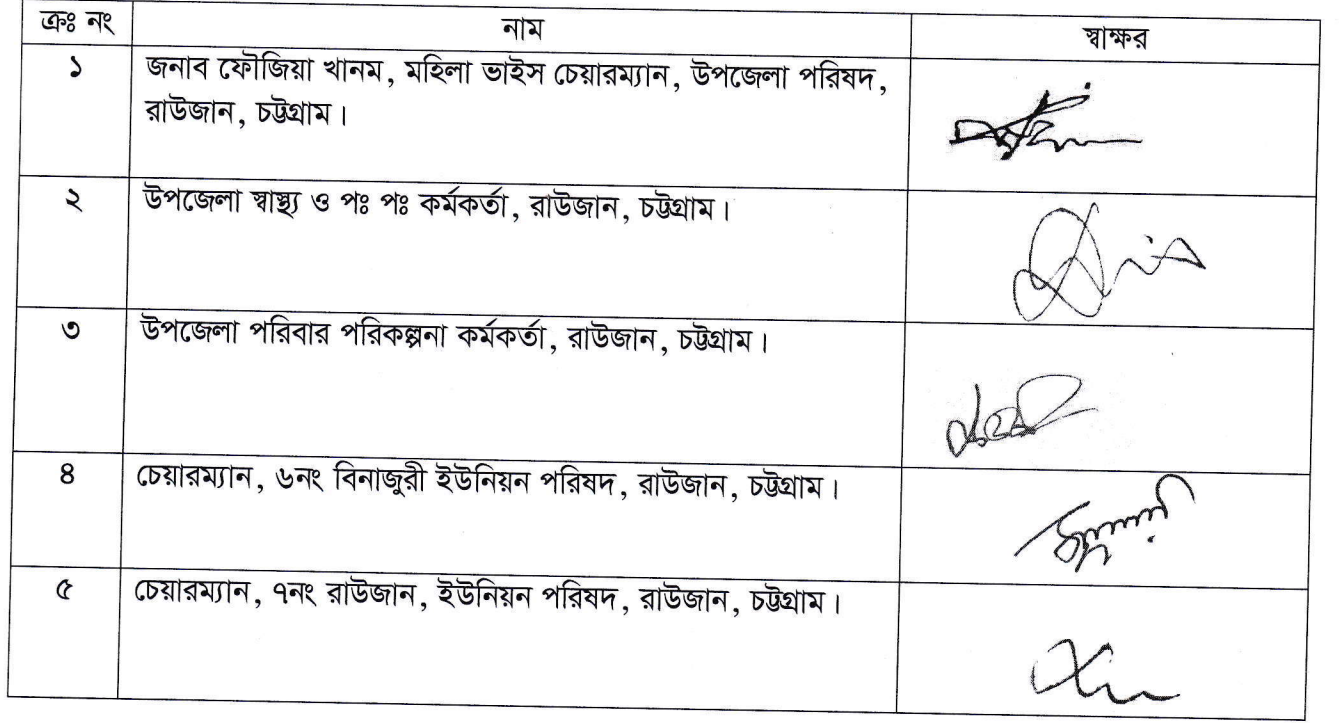 ক্রঃ নং নাম স্বাক্ষর
১ জনাব ফৌজিয়া খানম, মহিলা ভাইস চেয়ারম্যান, উপজেলা পরিষদ,
রাউজান, চট্টগ্রাম।
২ উপজেলা স্বাস্থ্য ও পঃ পঃ কর্মকর্তা, রাউজান, চট্টগ্রাম।
৩ উপজেলা পরিবার পরিকল্পনা কর্মকর্তা, রাউজান, চট্টগ্রাম।
৪ চেয়ারম্যান, ৬নং বিনাজুরী ইউনিয়ন পরিষদ, রাউজান, চট্টগ্রাম।
৫ চেয়ারম্যান, ৭নং রাউজান, ইউনিয়ন পরিষদ, রাউজান, চট্টগ্রাম।